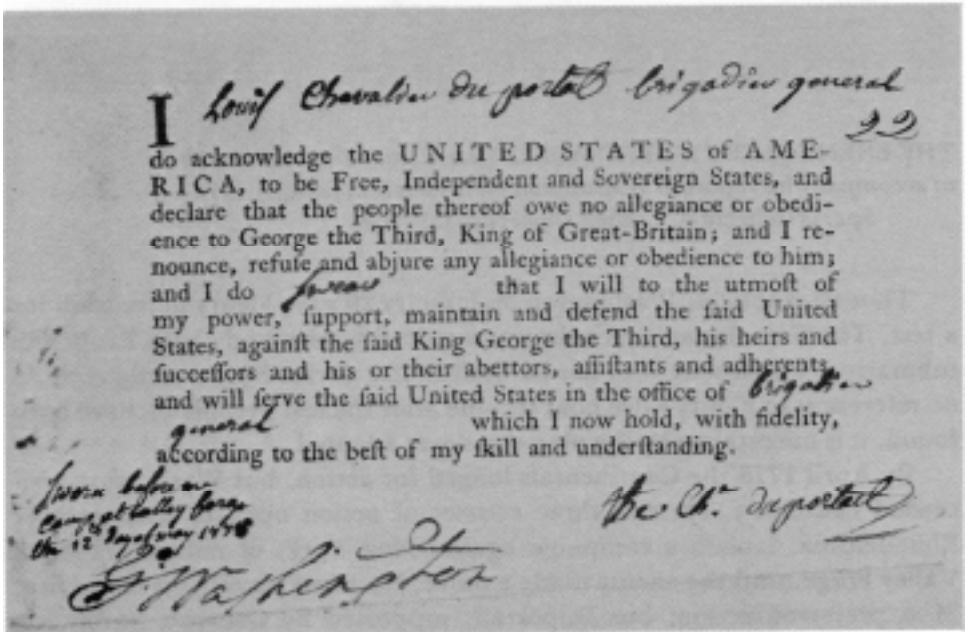 I Louis Chevalier du portail brigadier general
22
do acknowledge the UNITED STATES of AME-
RICA, to be Free, Independent and Sovereign States, and
declare that the people thereof owe no allegiance or obedi-
ence to George the Third, King of Great-Britain; and I re-
nounce, refuſe and abjure any allegiance or obedience to him;
and I do swear that I will to the utmoſt of
my power, ſupport, maintain and defend the ſaid United
States, againſt the ſaid King George the Third, his heirs and
ſucceſſors and his or their abettors, aſſiſtants and adherents,
and will ſerve the ſaid United States in the office of brigadier
general which I now hold, with fidelity,
according to the beſt of my ſkill and underſtanding.
Sworn before
Camp at Valley Forge
the 12th day of May 1778
the Chr duportail
G Washington